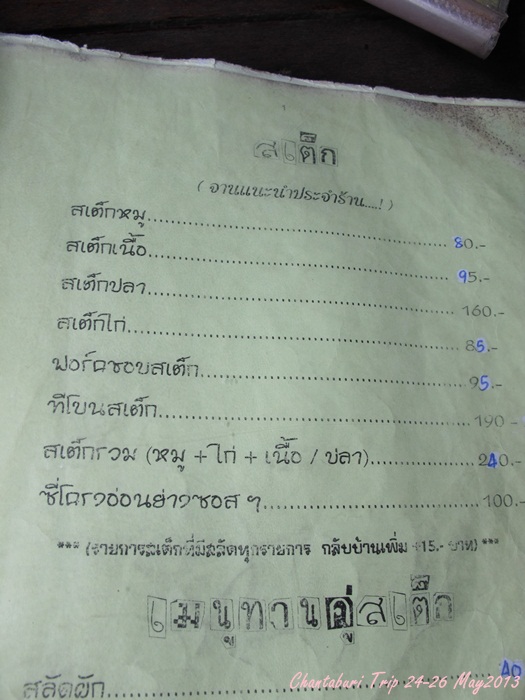 สเต็ก
(จานแนะนำประจำร้าน....!)
สเต็กหมู.......................................80.-
สเต็กเนื้อ.......................................95.-
สเต็กปลา.......................................160.-
สเต็กไก่.......................................85.-
พอร์คชอบสเต็ก.......................................95.-
ทีโบนสเต็ก.......................................190.-
สเต็กรวม (หมู + ไก่ + เนื้อ / ปลา)...............240.-
ซี่โครงอ่อนย่างซอส ๆ...............................100.-
*** (รายการสเต็กที่มีสลัดทุกรายการ กลับบ้านเพิ่ม +15.- บาท) ***
เมนูทานคู่สเต็ก
สลัดผัก.......................................40
Chantaburi Trip 24-26 May2013